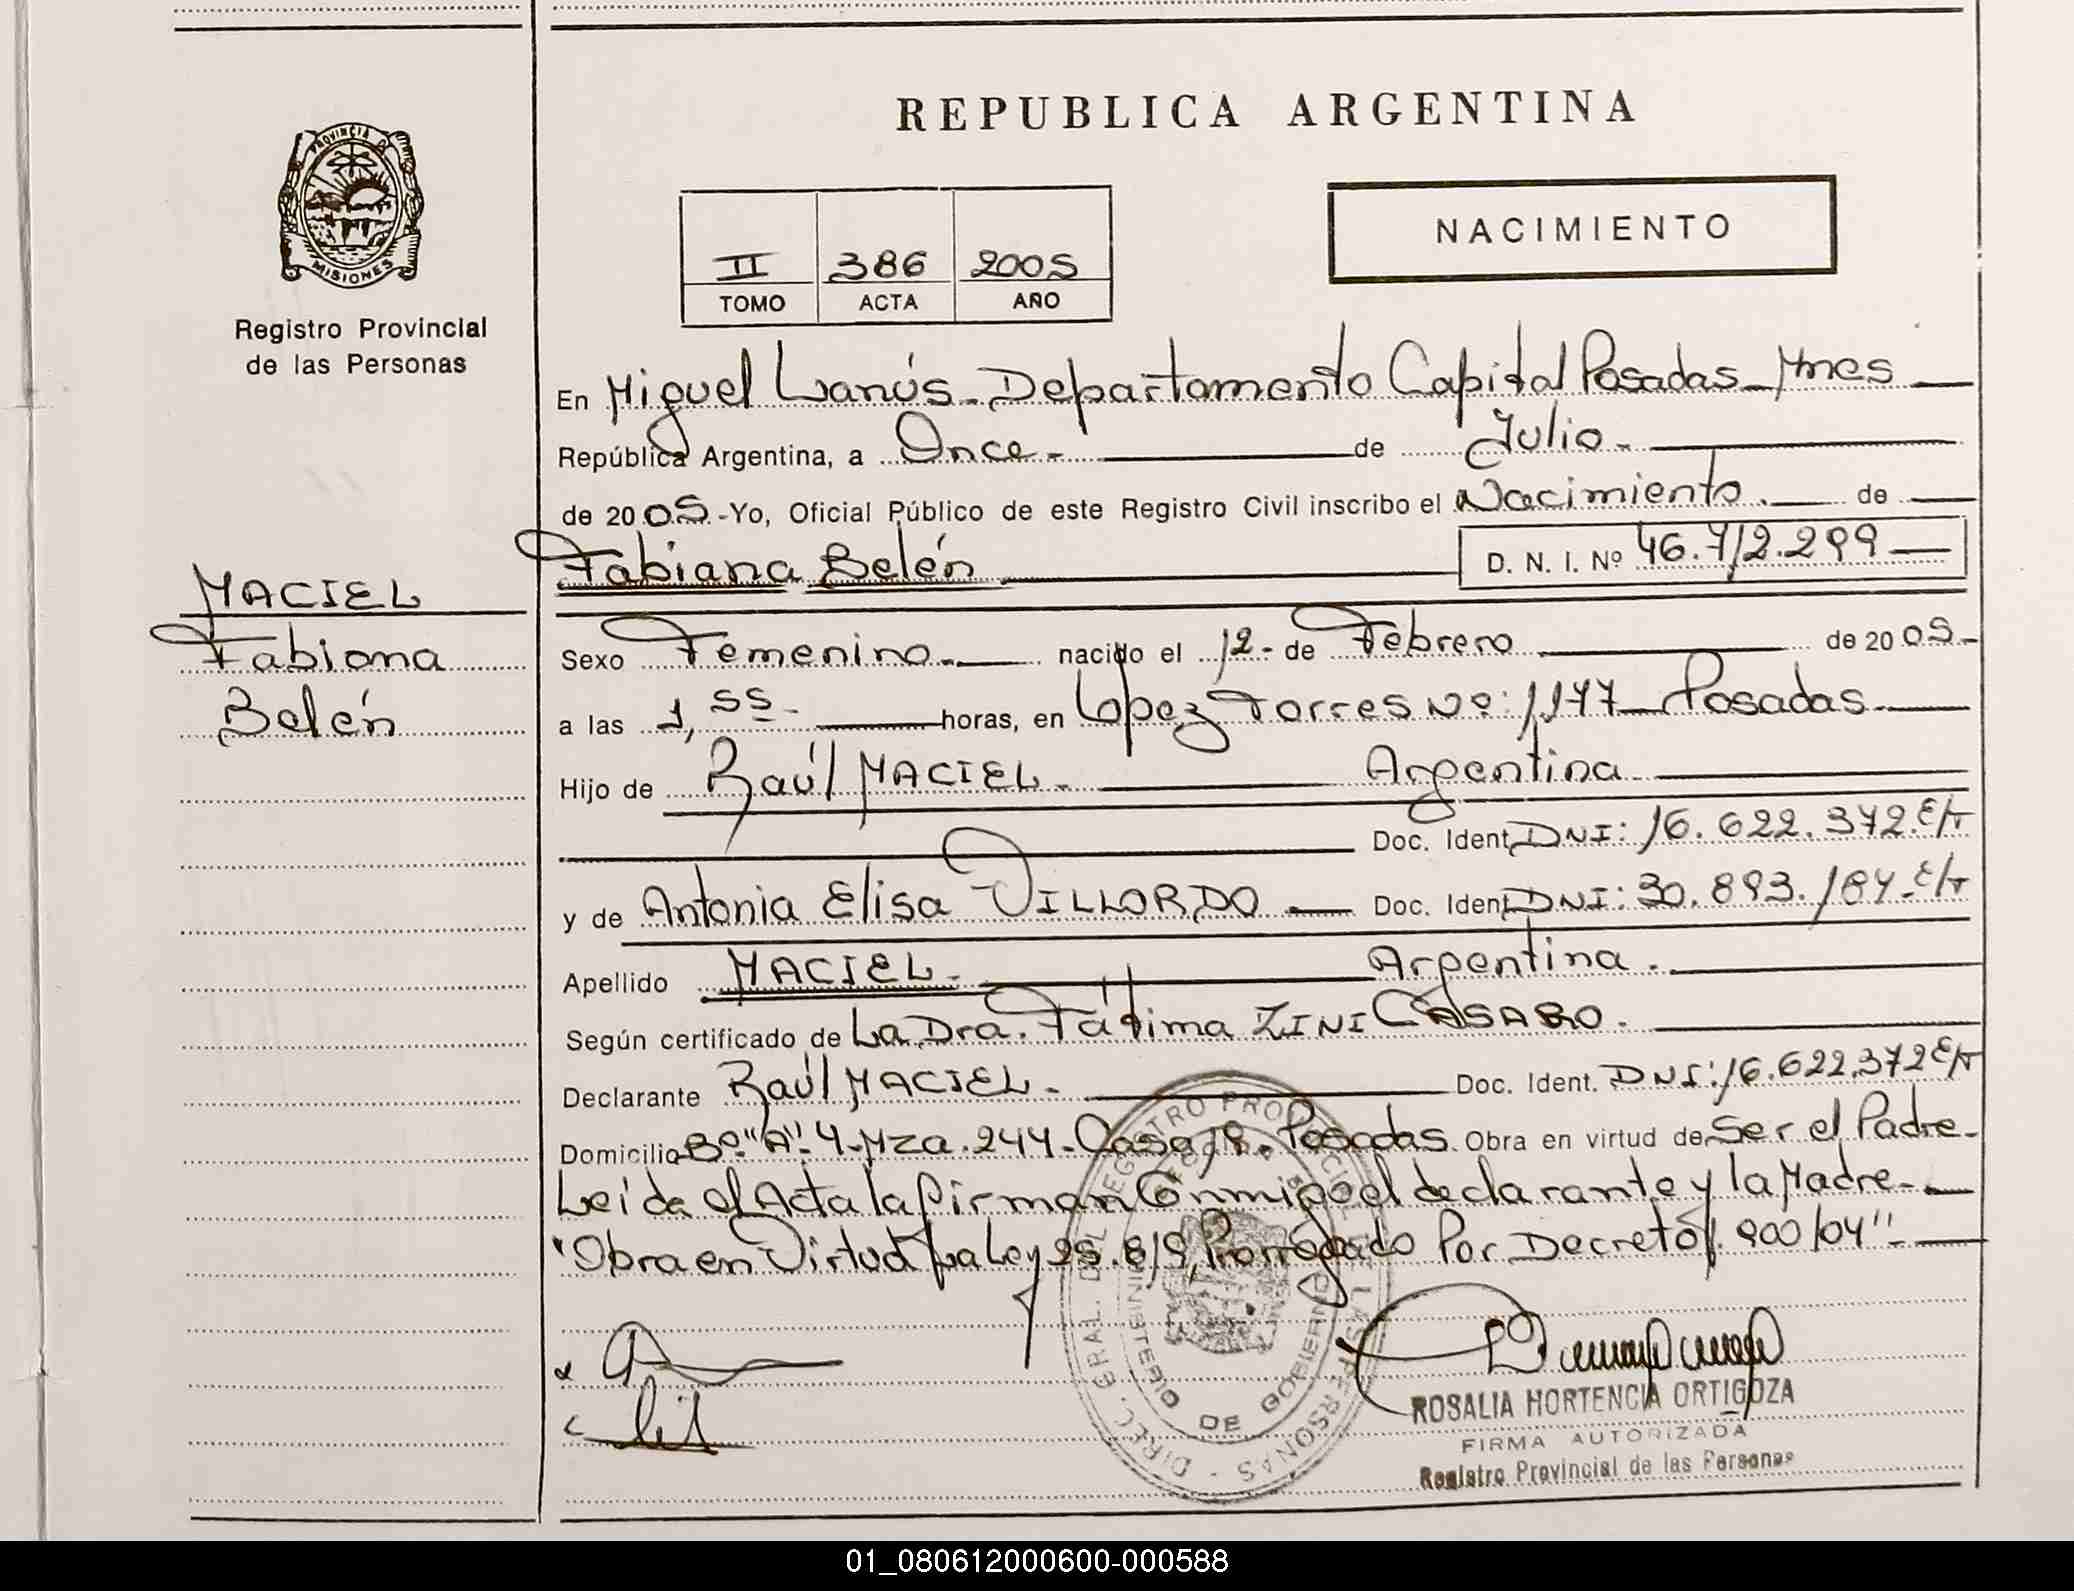 REPUBLICA ARGENTINA
PROVINCIA D
MISIONES
Registro Provincial
de las Personas
NACIMIENTO
II 386 2005
TOMO ACTA AÑO
En Miguel Lanús - Departamento Capital Posadas - Mnes
República Argentina, a Once - de Julio -
de 2005 - Yo, Oficial Público de este Registro Civil inscribo el Nacimiento. de
Fabiana Belén D. N. I. Nº 46.712.299
MACIEL
Fabiana
Belén
Sexo Femenino - nacido el 12 - de Febrero de 2005 -
a las 1,55 - horas, en López Torres Nº: 1177 - Posadas -
Hijo de Raúl MACIEL - Argentina
Doc. Ident. DNI: 16.622.372. E/T
y de Antonia Elisa VILLORDO - Doc. Iden. DNI: 30.893.184 - E/T
Apellido MACIEL - Argentina.
Según certificado de La Dra. Fátima ZINI CASARO.
Declarante Raúl MACIEL - Doc. Ident. DNI: 16.622.372 E/T
Domicilio Bº "A" - 4 - Mza. 244 - Casa 18 - Posadas. Obra en virtud de Ser el Padre -
Leída el Acta la firman Conmigo el declarante y la Madre -
"Obra en Virtud la Ley 25.819, Prorrogado Por Decreto 900/04" -
DIREC. GRAL. DEL REGISTRO PROVINCIAL DE LAS PERSONAS -
MINISTERIO DE GOBIERNO
ROSALIA HORTENCIA ORTIGOZA
FIRMA AUTORIZADA
Registro Provincial de las Personas
01_080612000600-000588